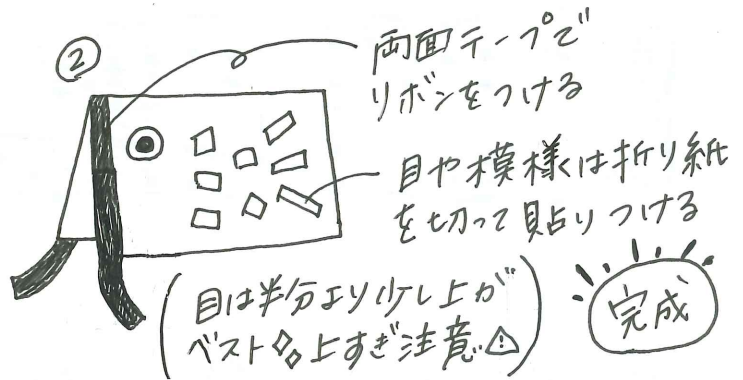 ②
両面テープで
リボンをつける
目や模様は折り紙
を切って貼りつける
(目は半分より少し上が
ベスト 上すぎ注意⚠)
完成